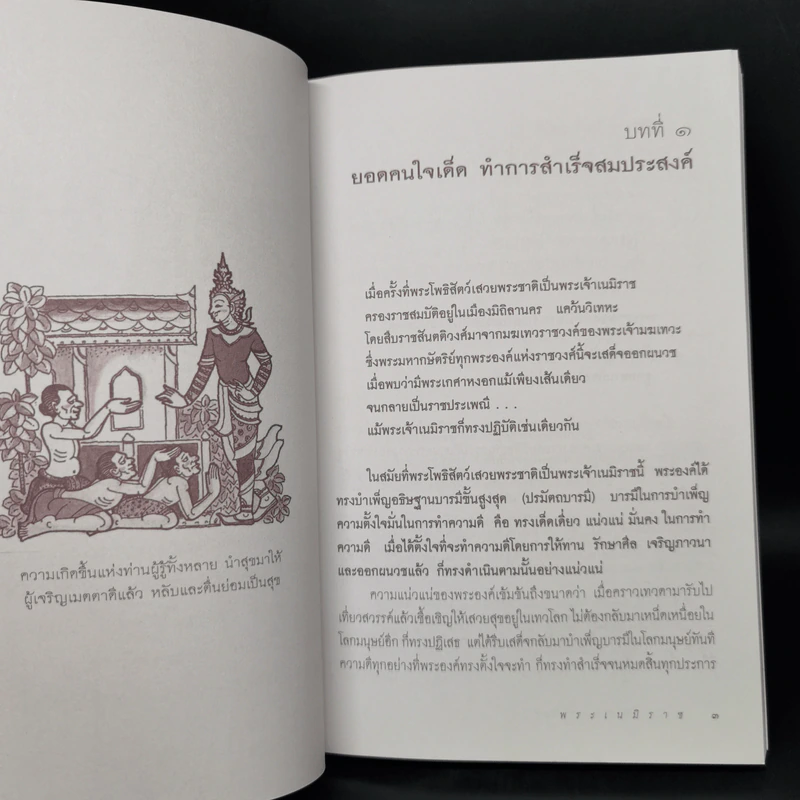 ความเกิดขึ้นแห่งท่านผู้รู้ทั้งหลาย นำสุขมาให้
ผู้เจริญเมตตาดีแล้ว หลับและตื่นย่อมเป็นสุข
บทที่ ๑
ยอดคนใจเด็ด ทำการสำเร็จสมประสงค์
เมื่อครั้งที่พระโพธิสัตว์เสวยพระชาติเป็นพระเจ้าเนมิราช
ครองราชสมบัติอยู่ในเมืองมิถิลานคร แคว้นวิเทหะ
โดยสืบราชสันตติวงศ์มาจากมฆเทวราชวงศ์ของพระเจ้ามฆเทวะ
ซึ่งพระมหากษัตริย์ทุกพระองค์แห่งราชวงศ์นี้จะเสด็จออกผนวช
เมื่อพบว่ามีพระเกศาหงอกแม้เพียงเส้นเดียว
จนกลายเป็นราชประเพณี . . .
แม้พระเจ้าเนมิราชก็ทรงปฏิบัติเช่นเดียวกัน
ในสมัยที่พระโพธิสัตว์เสวยพระชาติเป็นพระเจ้าเนมิราชนี้ พระองค์ได้
ทรงบำเพ็ญอธิษฐานบารมีขั้นสูงสุด (ปรมัตถบารมี) บารมีในการบำเพ็ญ
ความตั้งใจมั่นในการทำความดี คือ ทรงเด็ดเดี่ยว แน่วแน่ มั่นคง ในการทำ
ความดี เมื่อได้ตั้งใจที่จะทำความดีโดยการให้ทาน รักษาศีล เจริญภาวนา
และออกผนวชแล้ว ก็ทรงดำเนินตามนั้นอย่างแน่วแน่
ความแน่วแน่ของพระองค์เข้มข้นถึงขนาดว่า เมื่อคราวเทวดามารับไป
เที่ยวสวรรค์แล้วเชื้อเชิญให้เสวยสุขอยู่ในเทวโลก ไม่ต้องกลับมาเหน็ดเหนื่อยใน
โลกมนุษย์อีก ก็ทรงปฏิเสธ แต่ได้รีบเสด็จกลับมาบำเพ็ญบารมีในโลกมนุษย์ทันที
ความดีทุกอย่างที่พระองค์ทรงตั้งใจจะทำ ก็ทรงทำสำเร็จจนหมดสิ้นทุกประการ
พระเนมิราช ๓